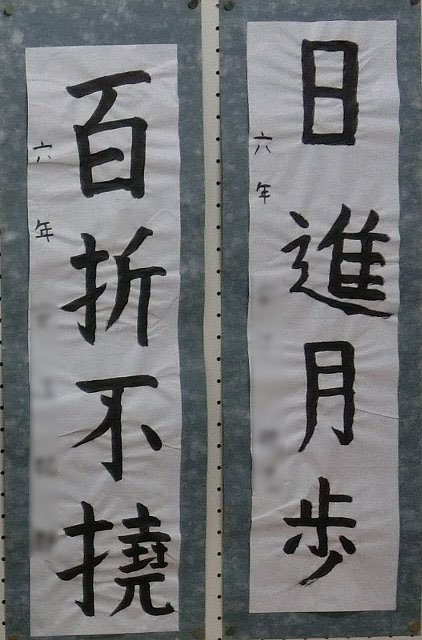 日進月歩
六年
百折不撓
六年